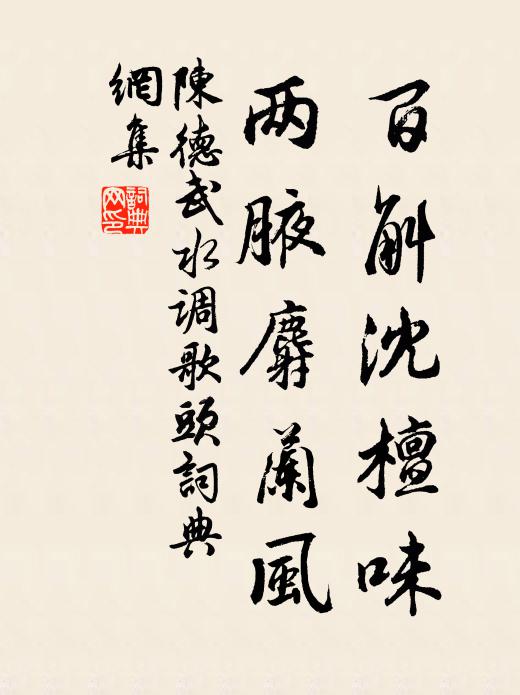 百斛沈檀味
两腋麝蘭風
陳德武水调歌頭詞典
網集
詞典網印